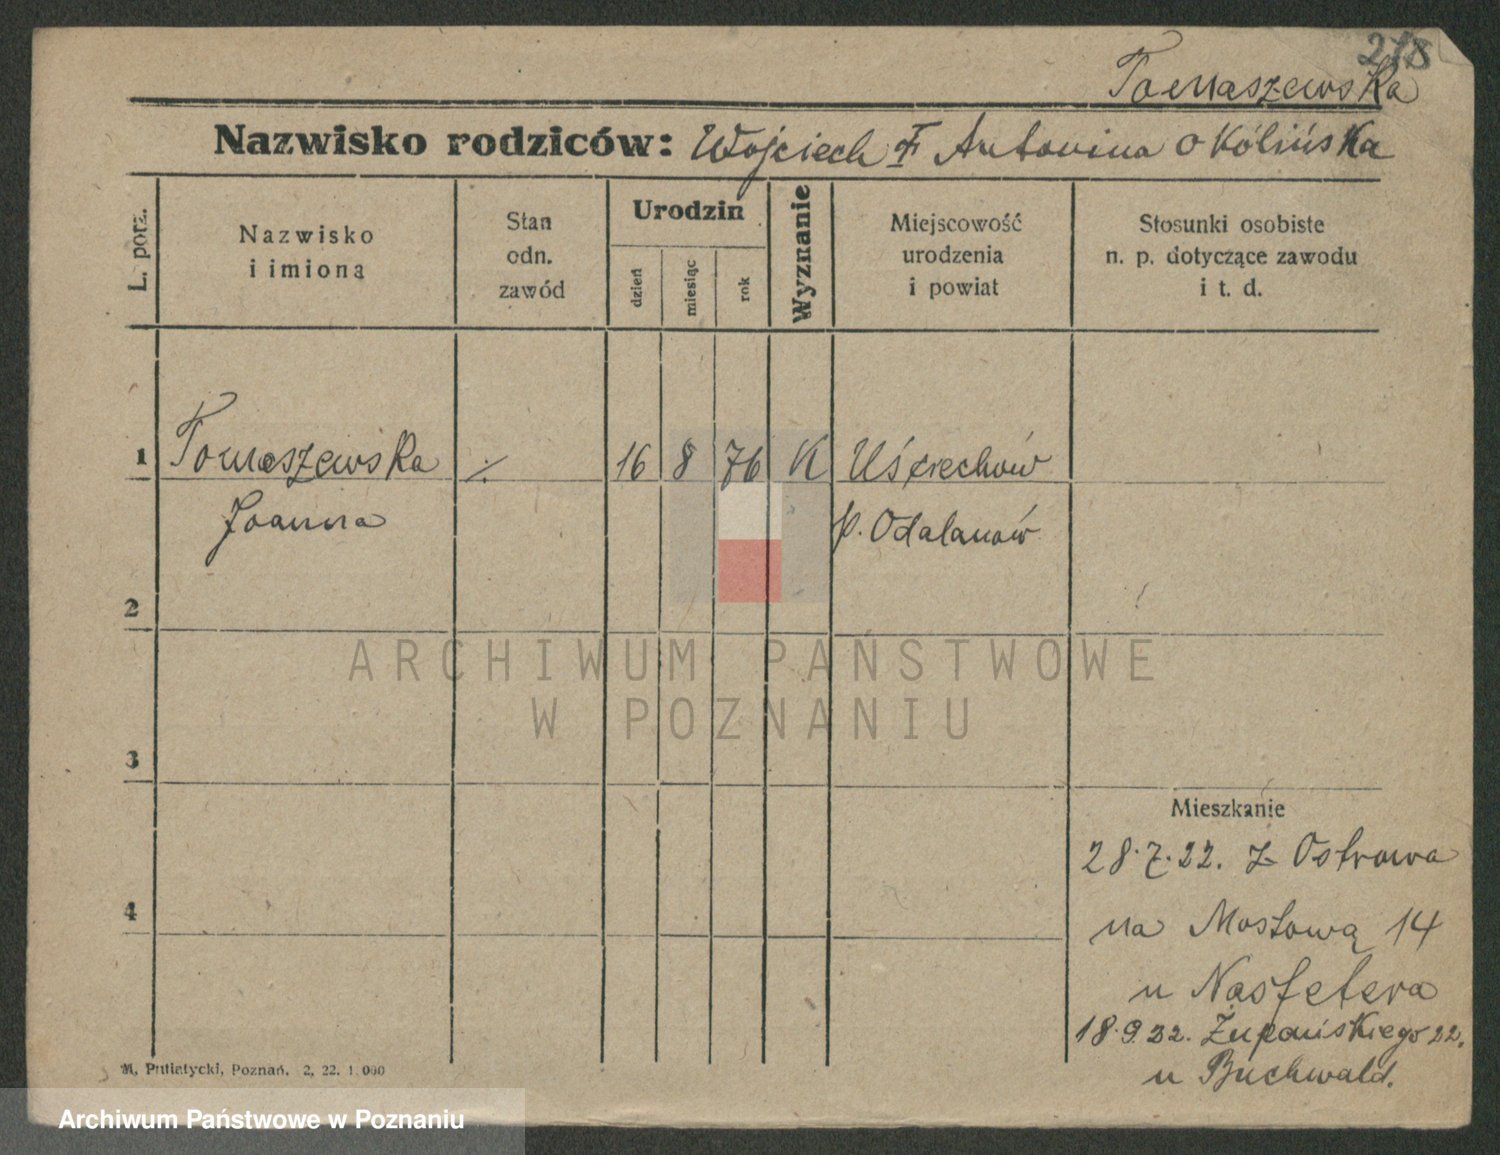 218
Tomaszewska
Nazwisko rodziców: Wojciech i Antonina Okólińska
L. porz.
Nazwisko
i imiona
Stan
odn.
zawód
Urodzin
dzień
miesiąc
rok
Wyznanie
Miejscowość
urodzenia
i powiat
Stosunki osobiste
n. p. dotyczące zawodu
i t. d.
1 Tomaszewska ./. 16 8 76 K Uściechów
Joanna p. Odalanów
2
ARCHIWUM PAŃSTWOWE
W POZNANIU
3
Mieszkanie
28.7.22. z Ostrowa
4
na Mostową 14
u Nasfetera
18.9.22. Żupańskiego 22.
u Buchwald.
M. Putiatycki, Poznań. 2, 22. 1.000
Archiwum Państwowe w Poznaniu